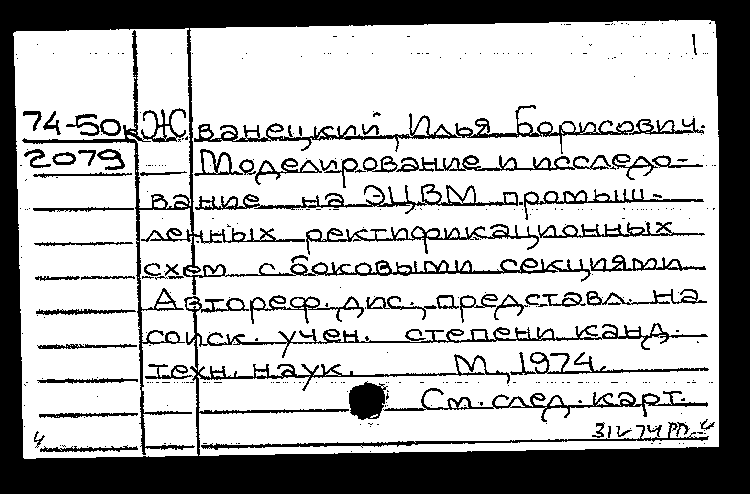 1
74-50к Жванецкий, Илья Борисович.
2079 Моделирование и исследо-
вание на ЭЦВМ промыш-
ленных ректификационных
схем с боковыми секциями
Автореф. дис., представл. на
соиск. учен. степени канд.
техн. наук. М., 1974.
См. след. карт.